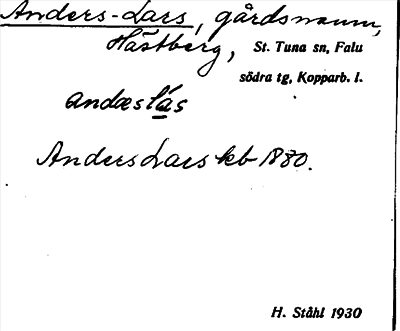 Anders-Lars, gårdsnamn,
Hästberg, St. Tuna sn, Falu
södra tg, Kopparb. l.
andæslás
Anders Lars kb 1880.
H. Ståhl 1930